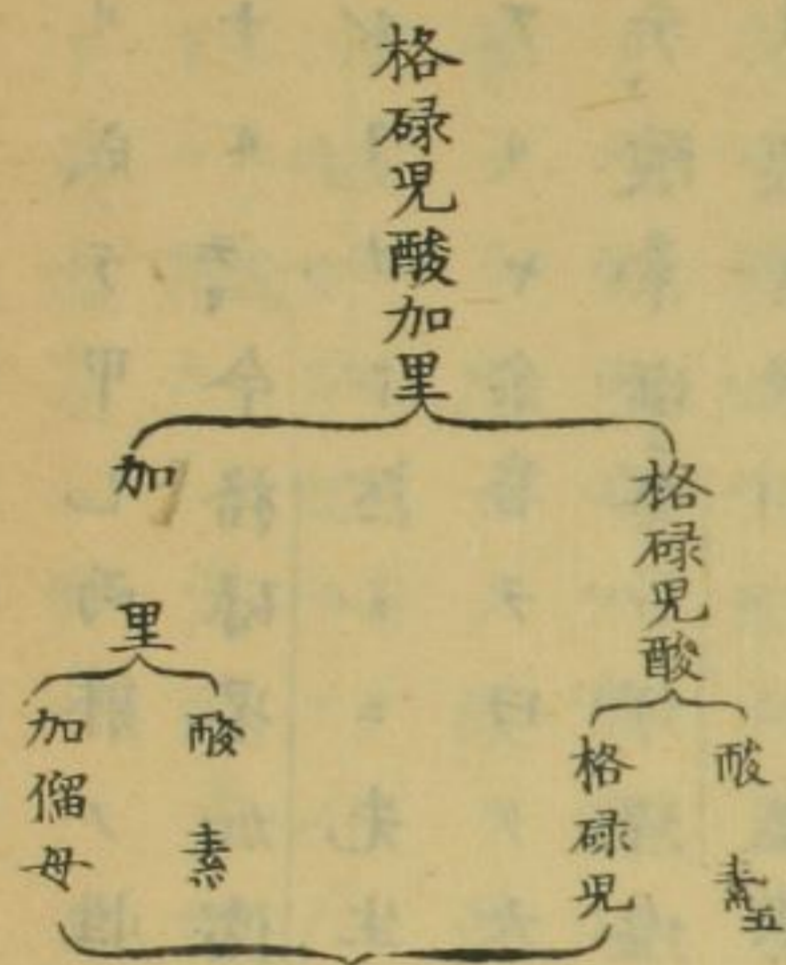 格碌児酸加里
格碌児酸
酸素五
格碌児
加里
酸素
加僂母